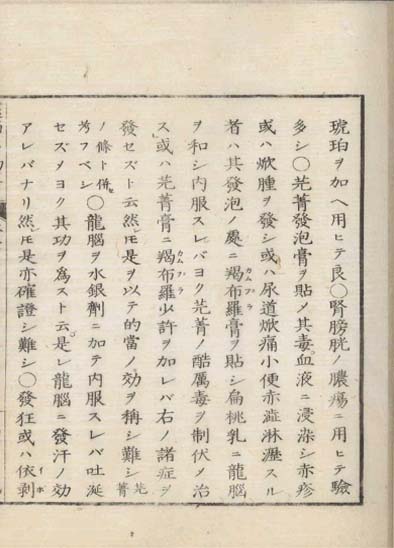 琥珀ヲ加ヘ用ヒテ良〇腎膀胱ノ膿瘍ニ用ヒテ驗
多シ〇芫菁發泡膏ヲ貼メ其毒血液ニ浸染シ赤疹
或ハ焮腫ヲ發シ或ハ尿道焮痛小便赤澁淋瀝スル
者ハ其發泡ノ處ニ羯布羅膏ヲ貼シ扁桃乳ニ龍腦
ヲ和シ内服スレバヨク芫菁ノ酷厲毒ヲ制伏メ治
ス或ハ芫菁膏ニ羯布羅少許ヲ加レバ右ノ諸症ヲ
發セズト云然𪜈是ヲ以テ的當ノ効ヲ稱シ難シ芫菁
ノ條ト併考フベシ〇龍腦ヲ水銀劑ニ加テ内服スレバ吐涎
セズメヨク其功ヲ爲スト云是レ龍腦ニ發汗ノ効
アレバナリ然𪜈是亦確證シ難シ〇發狂或ハ依剥